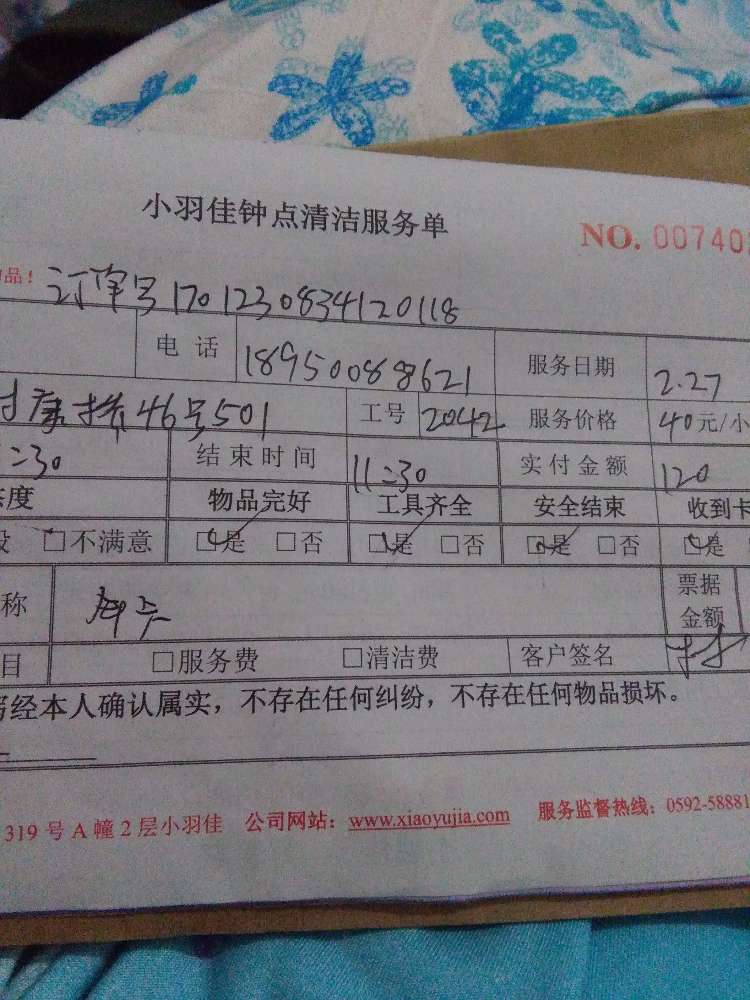 小羽佳钟点清洁服务单
NO. 00740
品！ 订单号170123083412 0118
电话 18950088621 服务日期 2.27
康桥46号501 工号 2042 服务价格 40元/小
:30 结束时间 11:30 实付金额 120
态度 物品完好 工具齐全 安全结束 收到卡
□不满意 □是 □否 □是 □否 □是 □否 □是
称 票据金额
目 □服务费 □清洁费 客户签名
经本人确认属实，不存在任何纠纷，不存在任何物品损坏。
319号A幢2层小羽佳 公司网站：www.xiaoyujia.com 服务监督热线：0592-58881